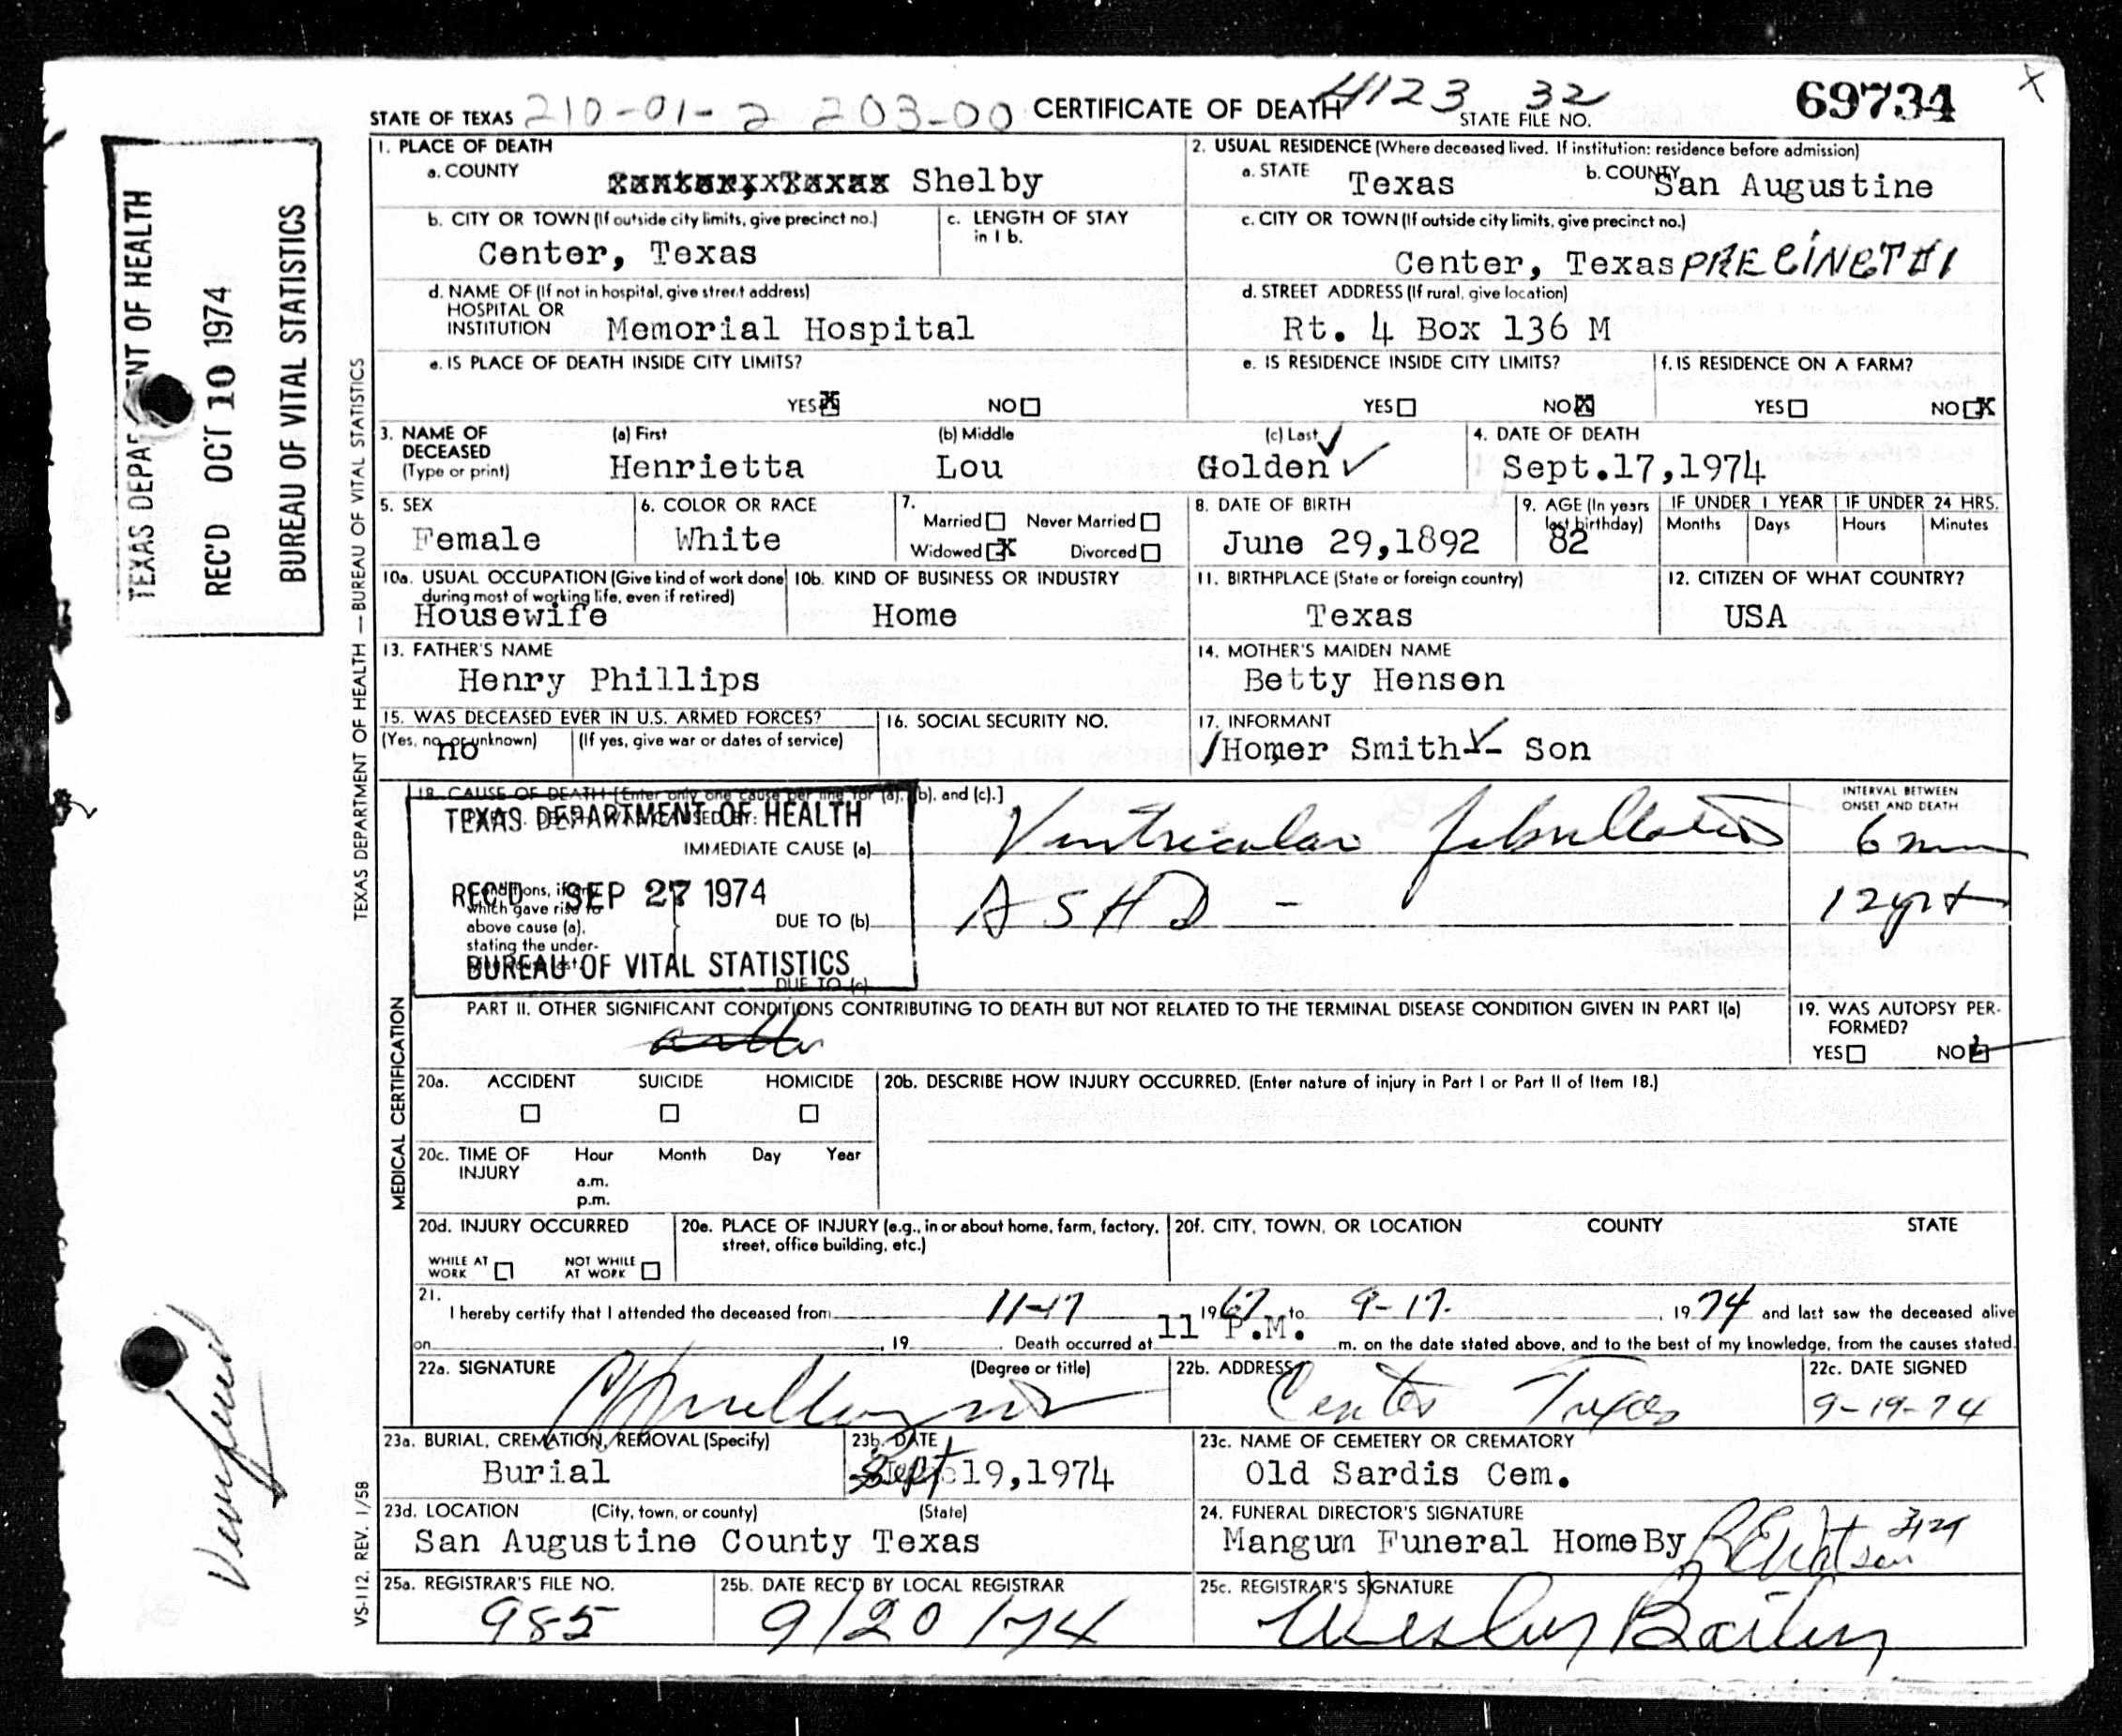 STATE OF TEXAS 210-01-2 203-00 CERTIFICATE OF DEATH 4123 32 STATE FILE NO. 69734 X
TEXAS DEPARTMENT OF HEALTH
REC'D OCT 10 1974
BUREAU OF VITAL STATISTICS
TEXAS DEPARTMENT OF HEALTH — BUREAU OF VITAL STATISTICS
1. PLACE OF DEATH
a. COUNTY
Shelby
2. USUAL RESIDENCE (Where deceased lived. If institution: residence before admission)
a. STATE Texas b. COUNTY San Augustine
b. CITY OR TOWN (If outside city limits, give precinct no.)
Center, Texas
c. LENGTH OF STAY
in 1 b.
c. CITY OR TOWN (If outside city limits, give precinct no.)
Center, Texas PRECINCT #1
d. NAME OF (If not in hospital, give street address)
HOSPITAL OR
INSTITUTION Memorial Hospital
d. STREET ADDRESS (If rural, give location)
Rt. 4 Box 136 M
e. IS PLACE OF DEATH INSIDE CITY LIMITS?
YES X NO
e. IS RESIDENCE INSIDE CITY LIMITS?
YES NO X
f. IS RESIDENCE ON A FARM?
YES NO X
3. NAME OF
DECEASED
(Type or print)
(a) First (b) Middle (c) Last
Henrietta Lou Golden
4. DATE OF DEATH
Sept.17,1974
5. SEX
Female
6. COLOR OR RACE
White
7.
Married Never Married
Widowed X Divorced
8. DATE OF BIRTH
June 29,1892
9. AGE (In years
last birthday)
82
IF UNDER 1 YEAR IF UNDER 24 HRS.
Months Days Hours Minutes
10a. USUAL OCCUPATION (Give kind of work done
during most of working life, even if retired)
Housewife
10b. KIND OF BUSINESS OR INDUSTRY
Home
11. BIRTHPLACE (State or foreign country)
Texas
12. CITIZEN OF WHAT COUNTRY?
USA
13. FATHER'S NAME
Henry Phillips
14. MOTHER'S MAIDEN NAME
Betty Henson
15. WAS DECEASED EVER IN U.S. ARMED FORCES?
(Yes, no, or unknown) (If yes, give war or dates of service)
no
16. SOCIAL SECURITY NO.
17. INFORMANT
Homer Smith - Son
MEDICAL CERTIFICATION
18. CAUSE OF DEATH [Enter only one cause per line for (a), (b), and (c).]
INTERVAL BETWEEN
ONSET AND DEATH
TEXAS DEPARTMENT OF HEALTH
IMMEDIATE CAUSE (a) Ventricular fibrillation 6 min
REC'D SEP 27 1974
Conditions, if any,
which gave rise to
above cause (a),
stating the under-
DUE TO (b) ASHD - 12 yr +
BUREAU OF VITAL STATISTICS
DUE TO (c)
PART II. OTHER SIGNIFICANT CONDITIONS CONTRIBUTING TO DEATH BUT NOT RELATED TO THE TERMINAL DISEASE CONDITION GIVEN IN PART I(a)
19. WAS AUTOPSY PER-
FORMED?
YES NO
20a. ACCIDENT SUICIDE HOMICIDE
20b. DESCRIBE HOW INJURY OCCURRED. (Enter nature of injury in Part I or Part II of Item 18.)
20c. TIME OF
INJURY
Hour Month Day Year
a.m.
p.m.
20d. INJURY OCCURRED
WHILE AT
WORK
NOT WHILE
AT WORK
20e. PLACE OF INJURY (e.g., in or about home, farm, factory,
street, office building, etc.)
20f. CITY, TOWN, OR LOCATION COUNTY STATE
21.
I hereby certify that I attended the deceased from 11-17 1967 to 9-17- , 1974 and last saw the deceased alive
on , 19 . Death occurred at 11 P.M. m. on the date stated above, and to the best of my knowledge, from the causes stated.
22a. SIGNATURE (Degree or title)
22b. ADDRESS
Center Texas
22c. DATE SIGNED
9-19-74
23a. BURIAL, CREMATION, REMOVAL (Specify)
Burial
23b. DATE
Sept 19,1974
23c. NAME OF CEMETERY OR CREMATORY
Old Sardis Cem.
23d. LOCATION (City, town, or county) (State)
San Augustine County Texas
24. FUNERAL DIRECTOR'S SIGNATURE
Mangum Funeral Home By R E Watson
25a. REGISTRAR'S FILE NO.
985
25b. DATE REC'D BY LOCAL REGISTRAR
9/20/74
25c. REGISTRAR'S SIGNATURE
Wesley Bailey
VS-112. REV. 1/58